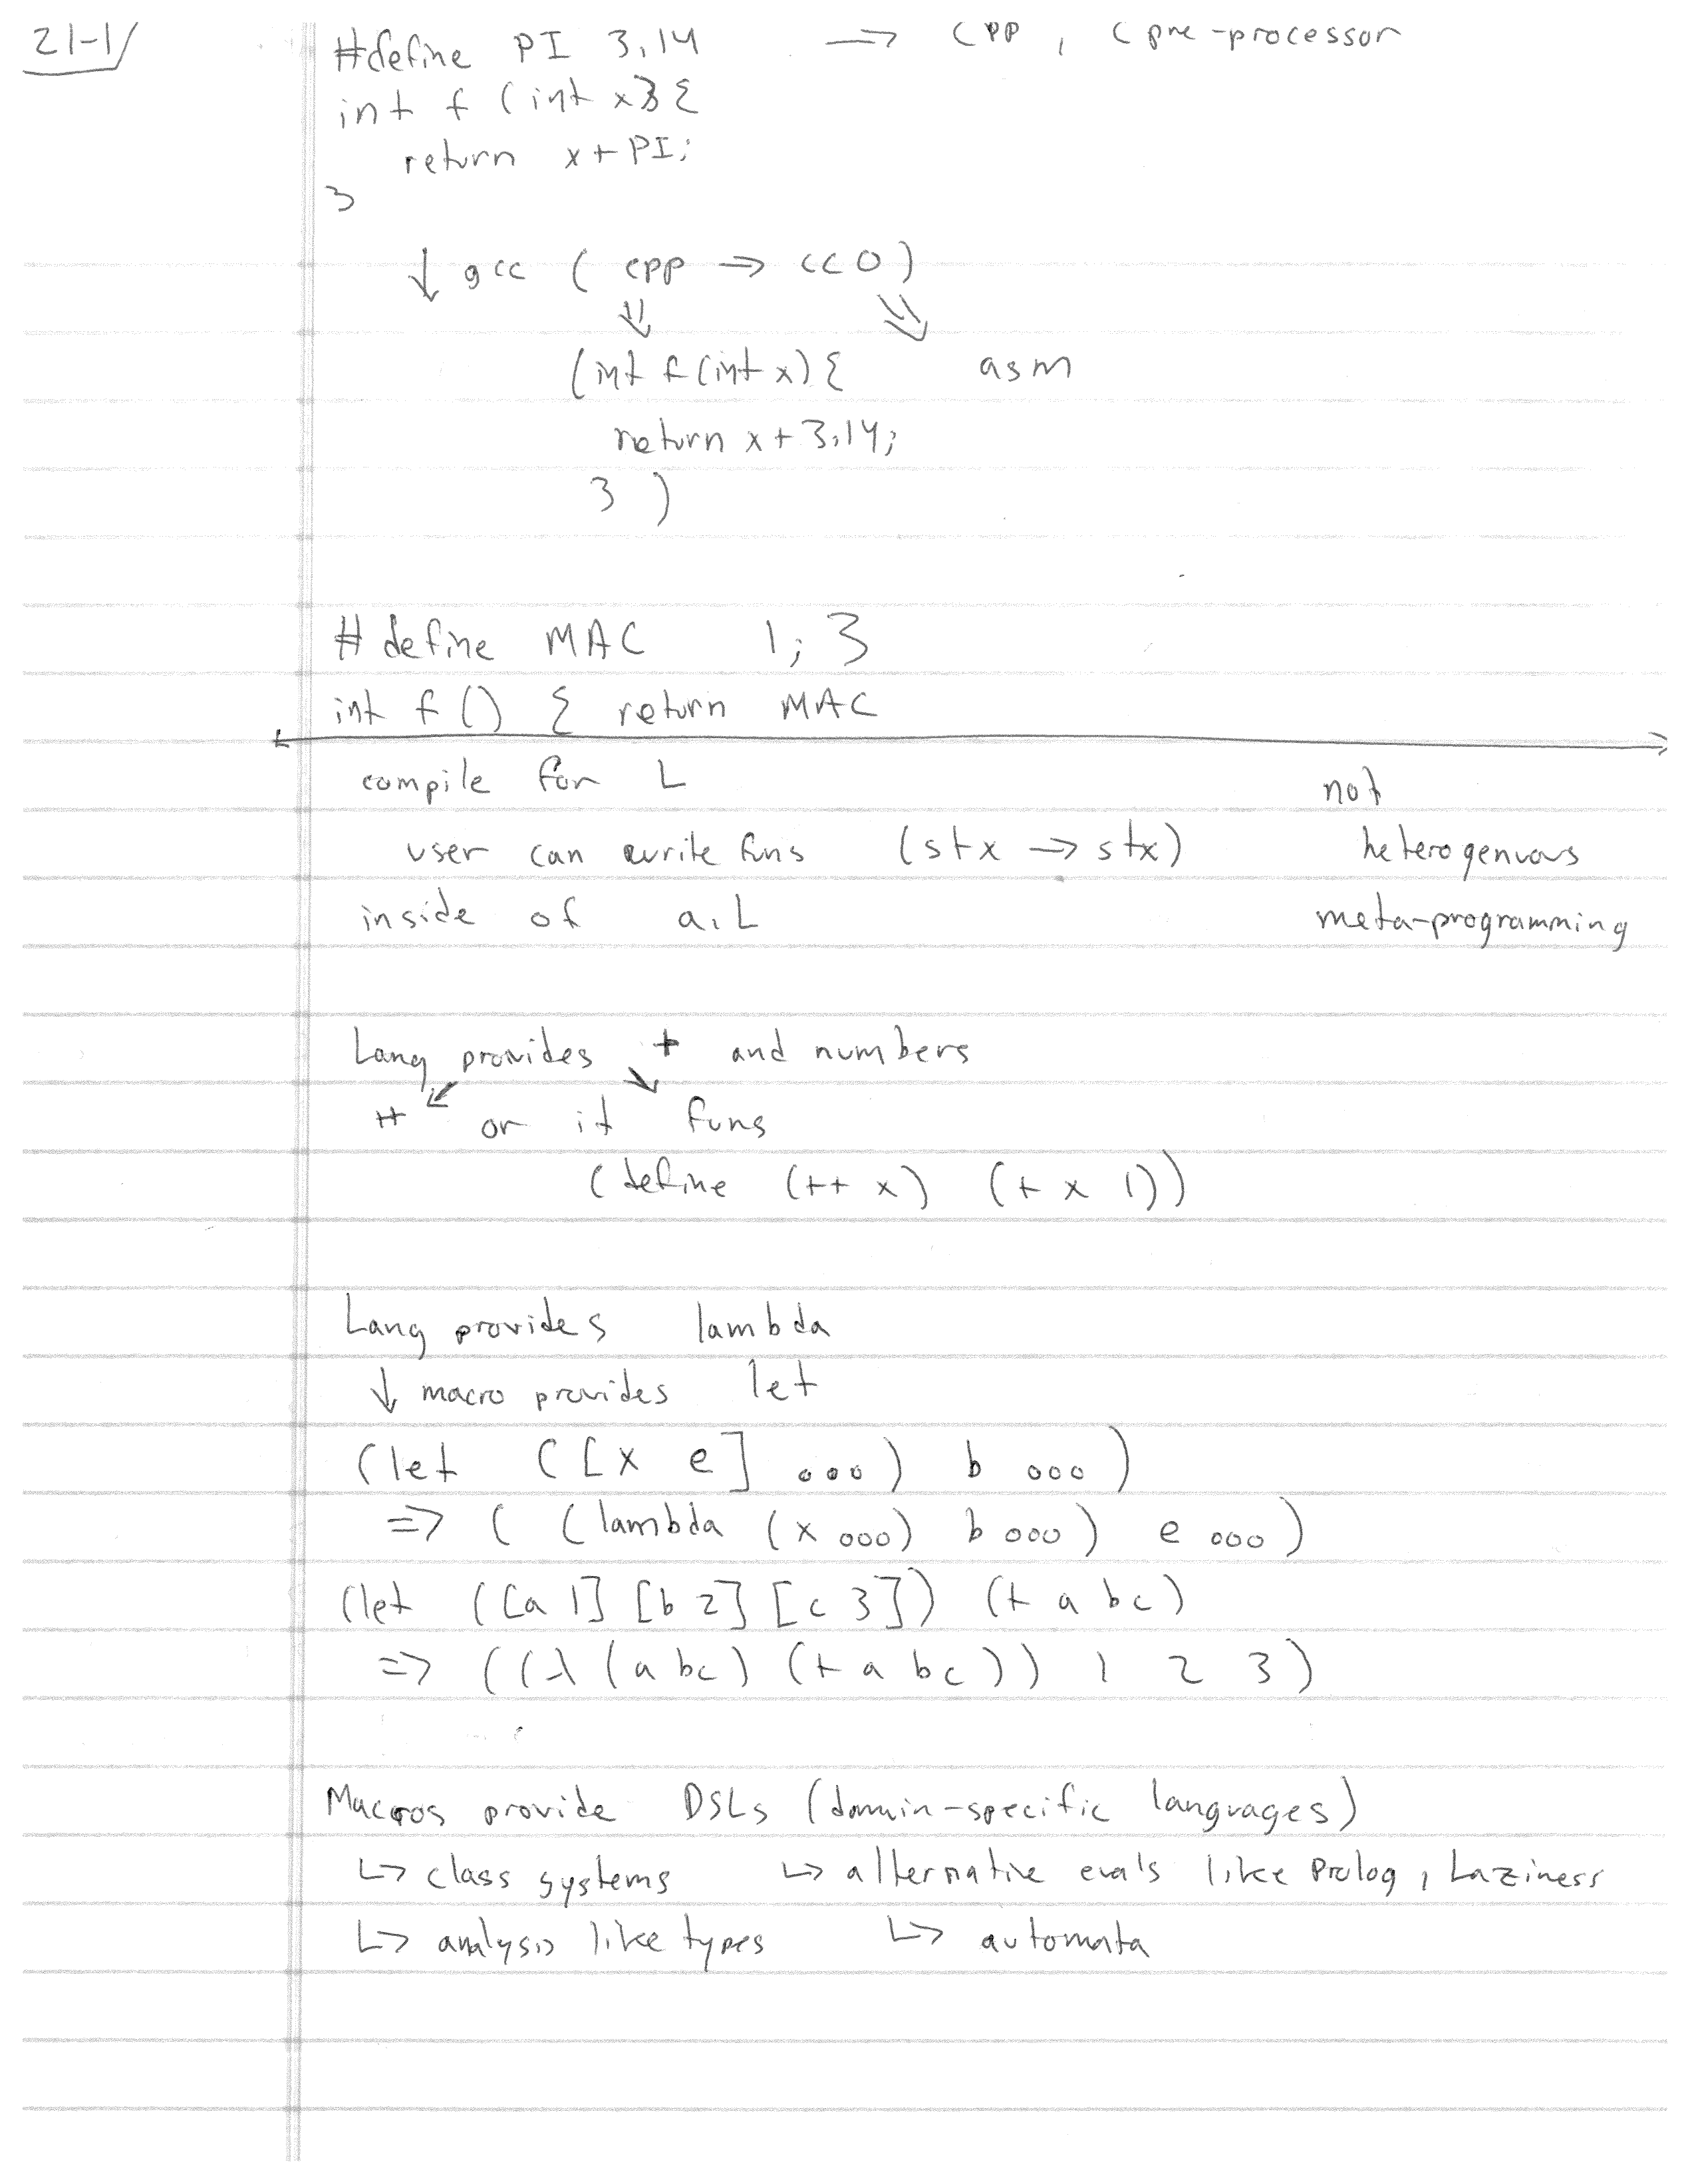 21-1/
#define PI 3.14 → CPP, C pre-processor
int f (int x) {
return x + PI;
}
↓ gcc ( cpp → cc0 )
⇓ ⇓
(int f(int x) { asm
return x + 3.14;
} )
#define MAC 1; }
int f () { return MAC
compile for L not
user can write funs (stx → stx) heterogenuous
inside of a.L meta-programming
Lang provides + and numbers
++ or it funs
(define (++ x) (+ x 1))
Lang provides lambda
↓ macro provides let
(let ([x e] ...) b ...)
=> ( (lambda (x ...) b ...) e ...)
(let ([a 1] [b 2] [c 3]) (+ a b c)
=> ((λ (a b c) (+ a b c)) 1 2 3)
Macros provide DSLs (domain-specific languages)
↳ class systems ↳ alternative eval's like Prolog, Laziness
↳ analysis like types ↳ automata